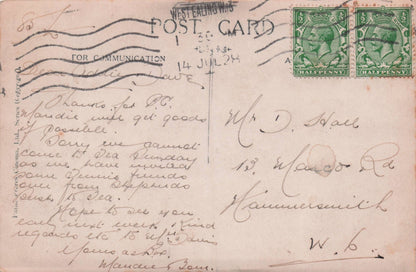 WEST EALING W.13
1 30 PM
14 JUL 24
POST CARD
FOR COMMUNICATION
HALFPENNY
HALFPENNY
Dear Dave
Thanks for PC.
Maudie will get goods
if possible.
Sorry we cannot
come to tea Sunday
as we have invited
some tennis friends
over from Shepherds
Bush to tea.
Hope to see you
early next week. Kind
regards etc to Mr
Yours as
Maudie &
Mr D. Hall
13, Rd
Hammersmith
W. 6.